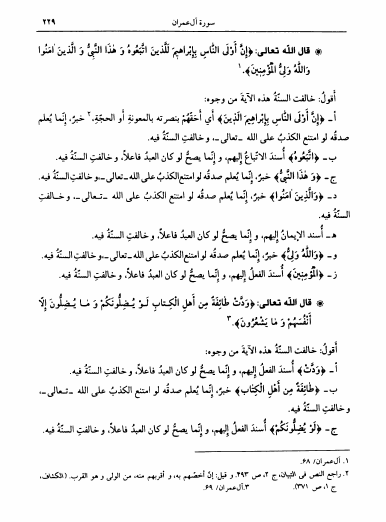 سورة آل‌عمران ٢٢٩
* قال اللّه تعالى: ﴿إِنَّ أَوْلَى النَّاسِ بِإِبْراهِيمَ لَلَّذِينَ اتَّبَعُوهُ وَ هٰذَا النَّبِيُّ وَ الَّذِينَ اٰمَنُوا
وَاللّٰهُ وَلِيُّ الْمُؤْمِنِينَ﴾.١
أقول: خالفت السنّة هذه الآية من وجوه:
أ ـ ﴿إِنَّ أَوْلَى النَّاسِ بِإِبْرَاهِيمَ الَّذِينَ﴾ أي أحقّهم بنصرته بالمعونة أو الحجّة،٢ خبرٌ، إنّما يُعلم
صدقُه لو امتنع الكذبُ على الله ـ تعالى ـ، و خالفتِ السنّةُ فيه.
ب ـ ﴿اتَّبَعُوهُ﴾ أُسند الاتّباعُ إليهم، و إنّما يصحُّ لو كان العبدُ فاعلاً، و خالفتِ السنّةُ فيه.
ج ـ ﴿وَ هٰذَا النَّبِيُّ﴾ خبرٌ، إنّما يُعلم صدقُه لو امتنع الكذبُ على الله ـ تعالى ـ، و خالفتِ السنّةُ فيه.
د ـ ﴿وَالَّذِينَ اٰمَنُوا﴾ خبرٌ، إنّما يُعلم صدقُه لو امتنع الكذبُ على الله ـ تـعالى ـ، و خـالفتِ
السنّةُ فيه.
هـ ـ أُسند الإيمانُ إليهم، و إنّما يصحُّ لو كان العبدُ فاعلاً، و خالفتِ السنّةُ فيه.
و ـ ﴿وَاللّٰهُ وَلِيُّ﴾ خبرٌ، إنّما يُعلم صدقُه لو امتنع الكذبُ على الله ـ تعالى ـ، و خالفتِ السنّةُ فيه.
ز ـ ﴿الْمُؤْمِنِينَ﴾ أُسند الفعلُ إليهم، و إنّما يصحُّ لو كان العبدُ فاعلاً، و خالفتِ السنّةُ فيه.
* قال اللّه تعالى: ﴿وَدَّتْ طَائِفَةٌ مِن أَهلِ الْكِتابِ لَوْ يُضِلُّونَكُمْ وَ مَا يُضِلُّونَ إِلَّا
أَنْفُسَهُمْ وَ مَا يَشْعُرُونَ﴾.٣
أقول: خالفت السنّة هذه الآية من وجوه:
أ ـ ﴿وَدَّتْ﴾ أُسند الفعلُ إليهم، و إنّما يصحُّ لو كان العبدُ فاعلاً، و خالفتِ السنّةُ فيه.
ب ـ ﴿طَائِفَةٌ مِن أَهْلِ الْكِتَابِ﴾ خبرٌ، إنّما يُعلم صدقُه لو امتنع الكذبُ على الله ـ تـعالى ـ،
و خالفتِ السنّةُ فيه.
ج ـ ﴿لَوْ يُضِلُّونَكُمْ﴾ أُسند الفعلُ إليهم، و إنّما يصحُّ لو كان العبدُ فاعلاً، و خالفتِ السنّةُ فيه.
١. آل‌عمران/ ٦٨.
٢. راجع النص في التبيان، ج ٢، ص ٤٩٣. و قيل: إنّ أخصّهم به، و أقربهم منه، من الولى و هو القرب. (الكشاف،
ج ١، ص ٣٧١). ٣. آل‌عمران/ ٦٩.